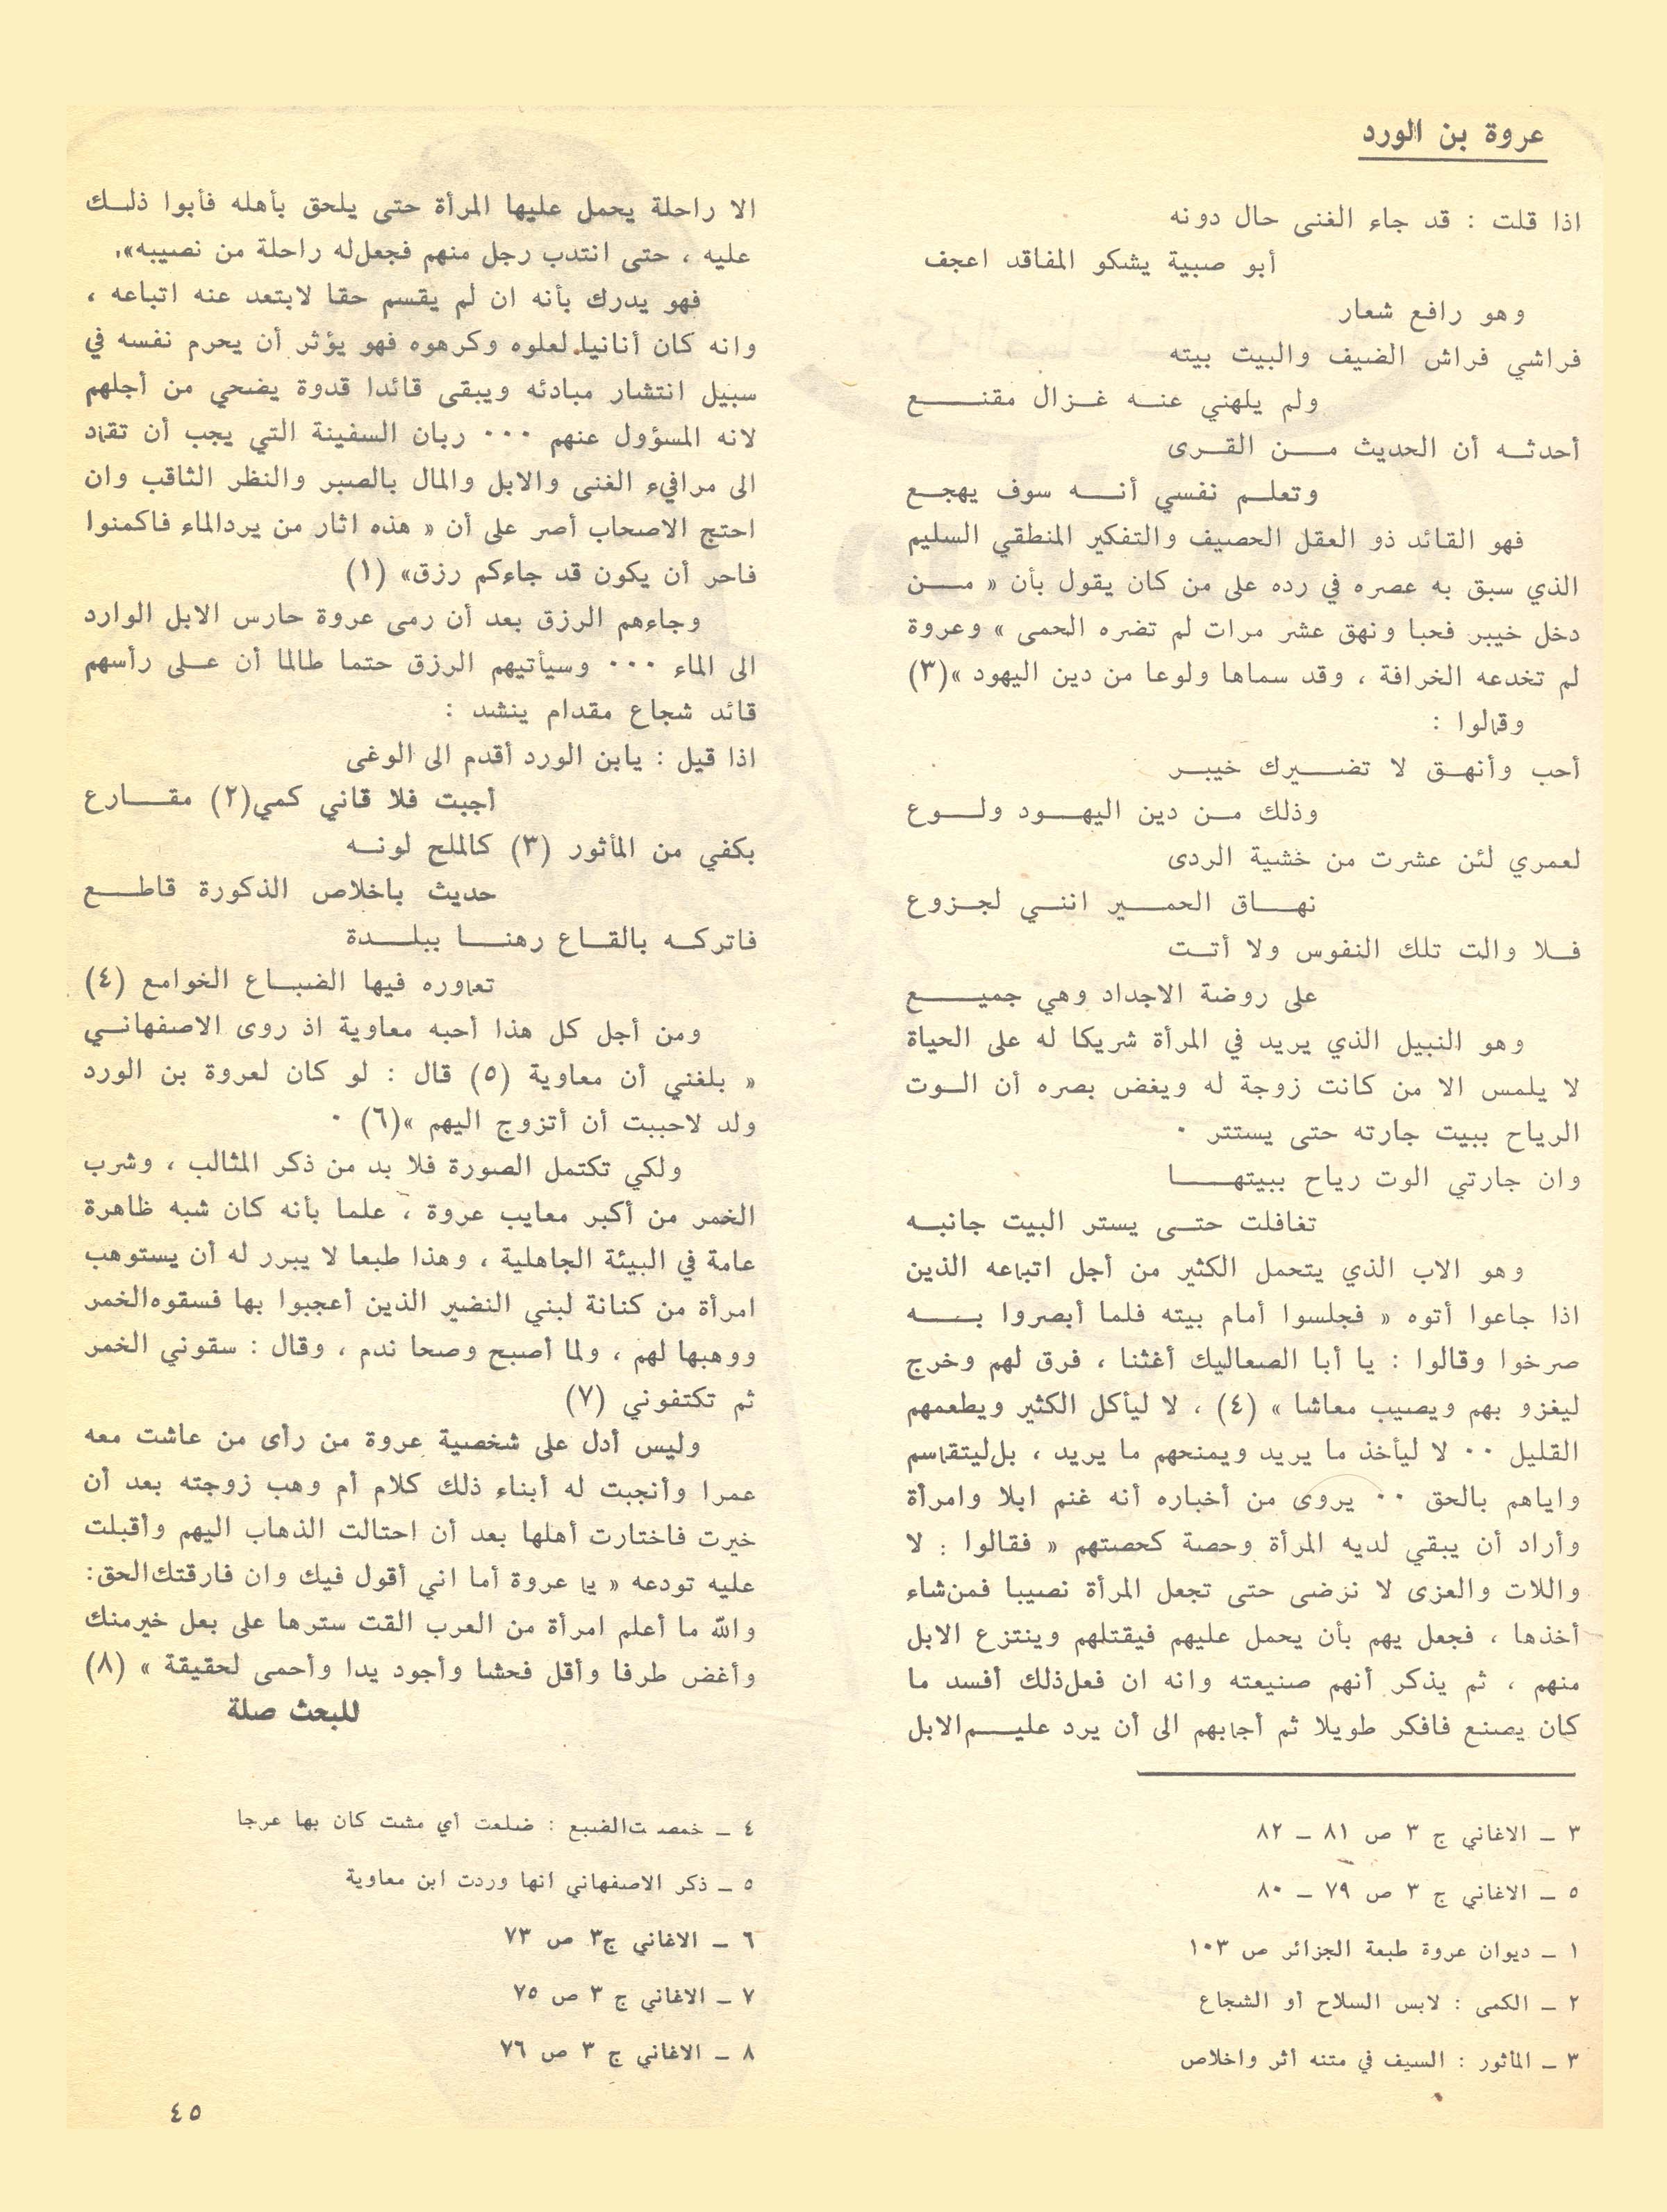 عروة بن الورد
اذا قلت : قد جاء الغنى حال دونه
أبو صبية يشكو المفاقد اعجف
وهو رافع شعار
فراشي فراش الضيف والبيت بيته
ولم يلهني عنه غزال مقنع
أحدثه أن الحديث من القرى
وتعلم نفسي أنه سوف يهجع
فهو القائد ذو العقل الحصيف والتفكير المنطقي السليم
الذي سبق به عصره في رده على من كان يقول بأن « من
دخل خيبر فحبا ونهق عشر مرات لم تضره الحمى » وعروة
لم تخدعه الخرافة ، وقد سماها ولوعا من دين اليهود »(٣)
وقالوا :
أحب وأنهق لا تضيرك خيبر
وذلك من دين اليهود ولوع
لعمري لئن عشرت من خشية الردى
نهاق الحمير انني لجزوع
فلا والت تلك النفوس ولا أتت
على روضة الاجداد وهي جميع
وهو النبيل الذي يريد في المرأة شريكا له على الحياة
لا يلمس الا من كانت زوجة له ويغض بصره أن الوت
الرياح ببيت جارته حتى يستتر ٠
وان جارتي الوت رياح ببيتها
تغافلت حتى يستر البيت جانبه
وهو الاب الذي يتحمل الكثير من أجل اتباعه الذين
اذا جاعوا أتوه « فجلسوا أمام بيته فلما أبصروا به
صرخوا وقالوا : يا أبا الصعاليك أغثنا ، فرق لهم وخرج
ليغزو بهم ويصيب معاشا » (٤) ، لا ليأكل الكثير ويطعمهم
القليل ٠٠ لا ليأخذ ما يريد ويمنحهم ما يريد ، بل ليتقاسم
واياهم بالحق ٠٠ يروى من أخباره أنه غنم ابلا وامرأة
وأراد أن يبقي لديه المرأة وحصة كحصتهم « فقالوا : لا
واللات والعزى لا نرضى حتى تجعل المرأة نصيبا فمن شاء
أخذها ، فجعل يهم بأن يحمل عليهم فيقتلهم وينتزع الابل
منهم ، ثم يذكر أنهم صنيعته وانه ان فعل ذلك أفسد ما
كان يصنع فافكر طويلا ثم أجابهم الى أن يرد عليهم الابل
الا راحلة يحمل عليها المرأة حتى يلحق بأهله فأبوا ذلك
عليه ، حتى انتدب رجل منهم فجعل له راحلة من نصيبه».
فهو يدرك بأنه ان لم يقسم حقا لابتعد عنه اتباعه ،
وانه كان أنانيا لعلوه وكرهوه فهو يؤثر أن يحرم نفسه في
سبيل انتشار مبادئه ويبقى قائدا قدوة يضحي من أجلهم
لانه المسؤول عنهم ٠٠٠ ربان السفينة التي يجب أن تقاد
الى مرافيء الغنى والابل والمال بالصبر والنظر الثاقب وان
احتج الاصحاب أصر على أن « هذه اثار من يرد الماء فاكمنوا
فاحر أن يكون قد جاءكم رزق» (١)
وجاءهم الرزق بعد أن رمى عروة حارس الابل الوارد
الى الماء ٠٠٠ وسيأتيهم الرزق حتما طالما أن على رأسهم
قائد شجاع مقدام ينشد :
اذا قيل : يابن الورد أقدم الى الوغى
أجبت فلا قاني كمي(٢) مقارع
بكفي من المأثور (٣) كالملح لونه
حديث باخلاص الذكورة قاطع
فاتركه بالقاع رهنا ببلدة
تعاوره فيها الضباع الخوامع (٤)
ومن أجل كل هذا أحبه معاوية اذ روى الاصفهاني
« بلغني أن معاوية (٥) قال : لو كان لعروة بن الورد
ولد لاحببت أن أتزوج اليهم »(٦) ٠
ولكي تكتمل الصورة فلا بد من ذكر المثالب ، وشرب
الخمر من أكبر معايب عروة ، علما بأنه كان شبه ظاهرة
عامة في البيئة الجاهلية ، وهذا طبعا لا يبرر له أن يستوهب
امرأة من كنانة لبني النضير الذين أعجبوا بها فسقوه الخمر
ووهبها لهم ، ولما أصبح وصحا ندم ، وقال : سقوني الخمر
ثم تكتفوني (٧)
وليس أدل على شخصية عروة من رأى من عاشت معه
عمرا وأنجبت له أبناء ذلك كلام أم وهب زوجته بعد أن
خيرت فاختارت أهلها بعد أن احتالت الذهاب اليهم وأقبلت
عليه تودعه « يا عروة أما اني أقول فيك وان فارقتك الحق:
والله ما أعلم امرأة من العرب القت سترها على بعل خير منك
وأغض طرفا وأقل فحشا وأجود يدا وأحمى لحقيقة » (٨)
للبحث صلة
٣ ـ الاغاني ج ٣ ص ٨١ ـ ٨٢
٥ ـ الاغاني ج ٣ ص ٧٩ ـ ٨٠
١ ـ ديوان عروة طبعة الجزائر ص ١٠٣
٢ ـ الكمى : لابس السلاح أو الشجاع
٣ ـ المأثور : السيف في متنه أثر واخلاص
٤ ـ خمصت الضبع : ضلعت أي مشت كان بها عرجا
٥ ـ ذكر الاصفهاني انها وردت ابن معاوية
٦ ـ الاغاني ج٣ ص ٧٣
٧ ـ الاغاني ج ٣ ص ٧٥
٨ ـ الاغاني ج ٣ ص ٧٦
٤٥